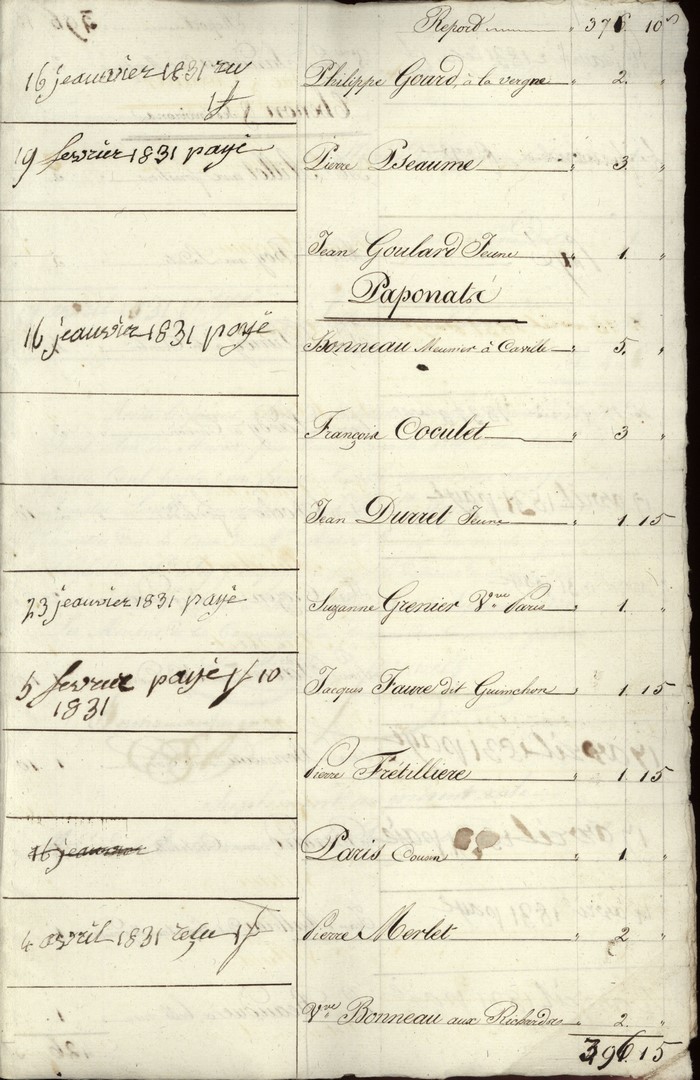 Report " 376 10 s
16 jeanvier 1831 ru
1 f
Philippe Gourd, à la vergne " 2. "
19 fevrier 1831 payé
Pierre Pseaume " 3. "
Jean Goulard Jeune " 1. "
Paponat
16 jeanvier 1831 payé
Bonneau Meunier à Caville " 5. "
François Coculet " 3 "
Jean Durret Jeune " 1. 15
23 jeanvier 1831 payé
Suzanne Grenier Vve Paris " 1. "
5 fevrier payé 1 f 10
1831
Jacques Faure dit Guimchon " 1. 15
Pierre Frétilliere " 1. 15
16 jeanvier
Paris Cousin " 1. "
4 avril 1831 resu 1 f
Pierre Merlet " 2 "
Vve Bonneau aux Richardes " 2. "
396. 15